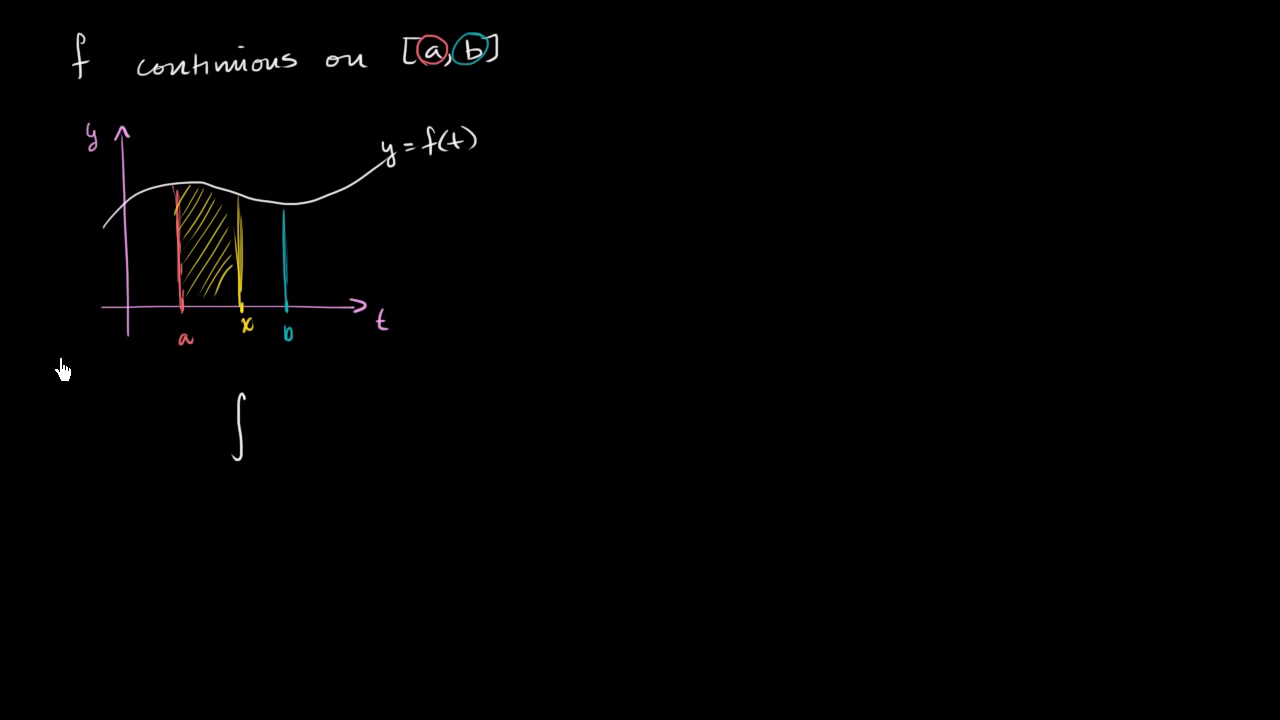 f continuous on [a,b]
y
y = f(t)
t
x
a
b
∫